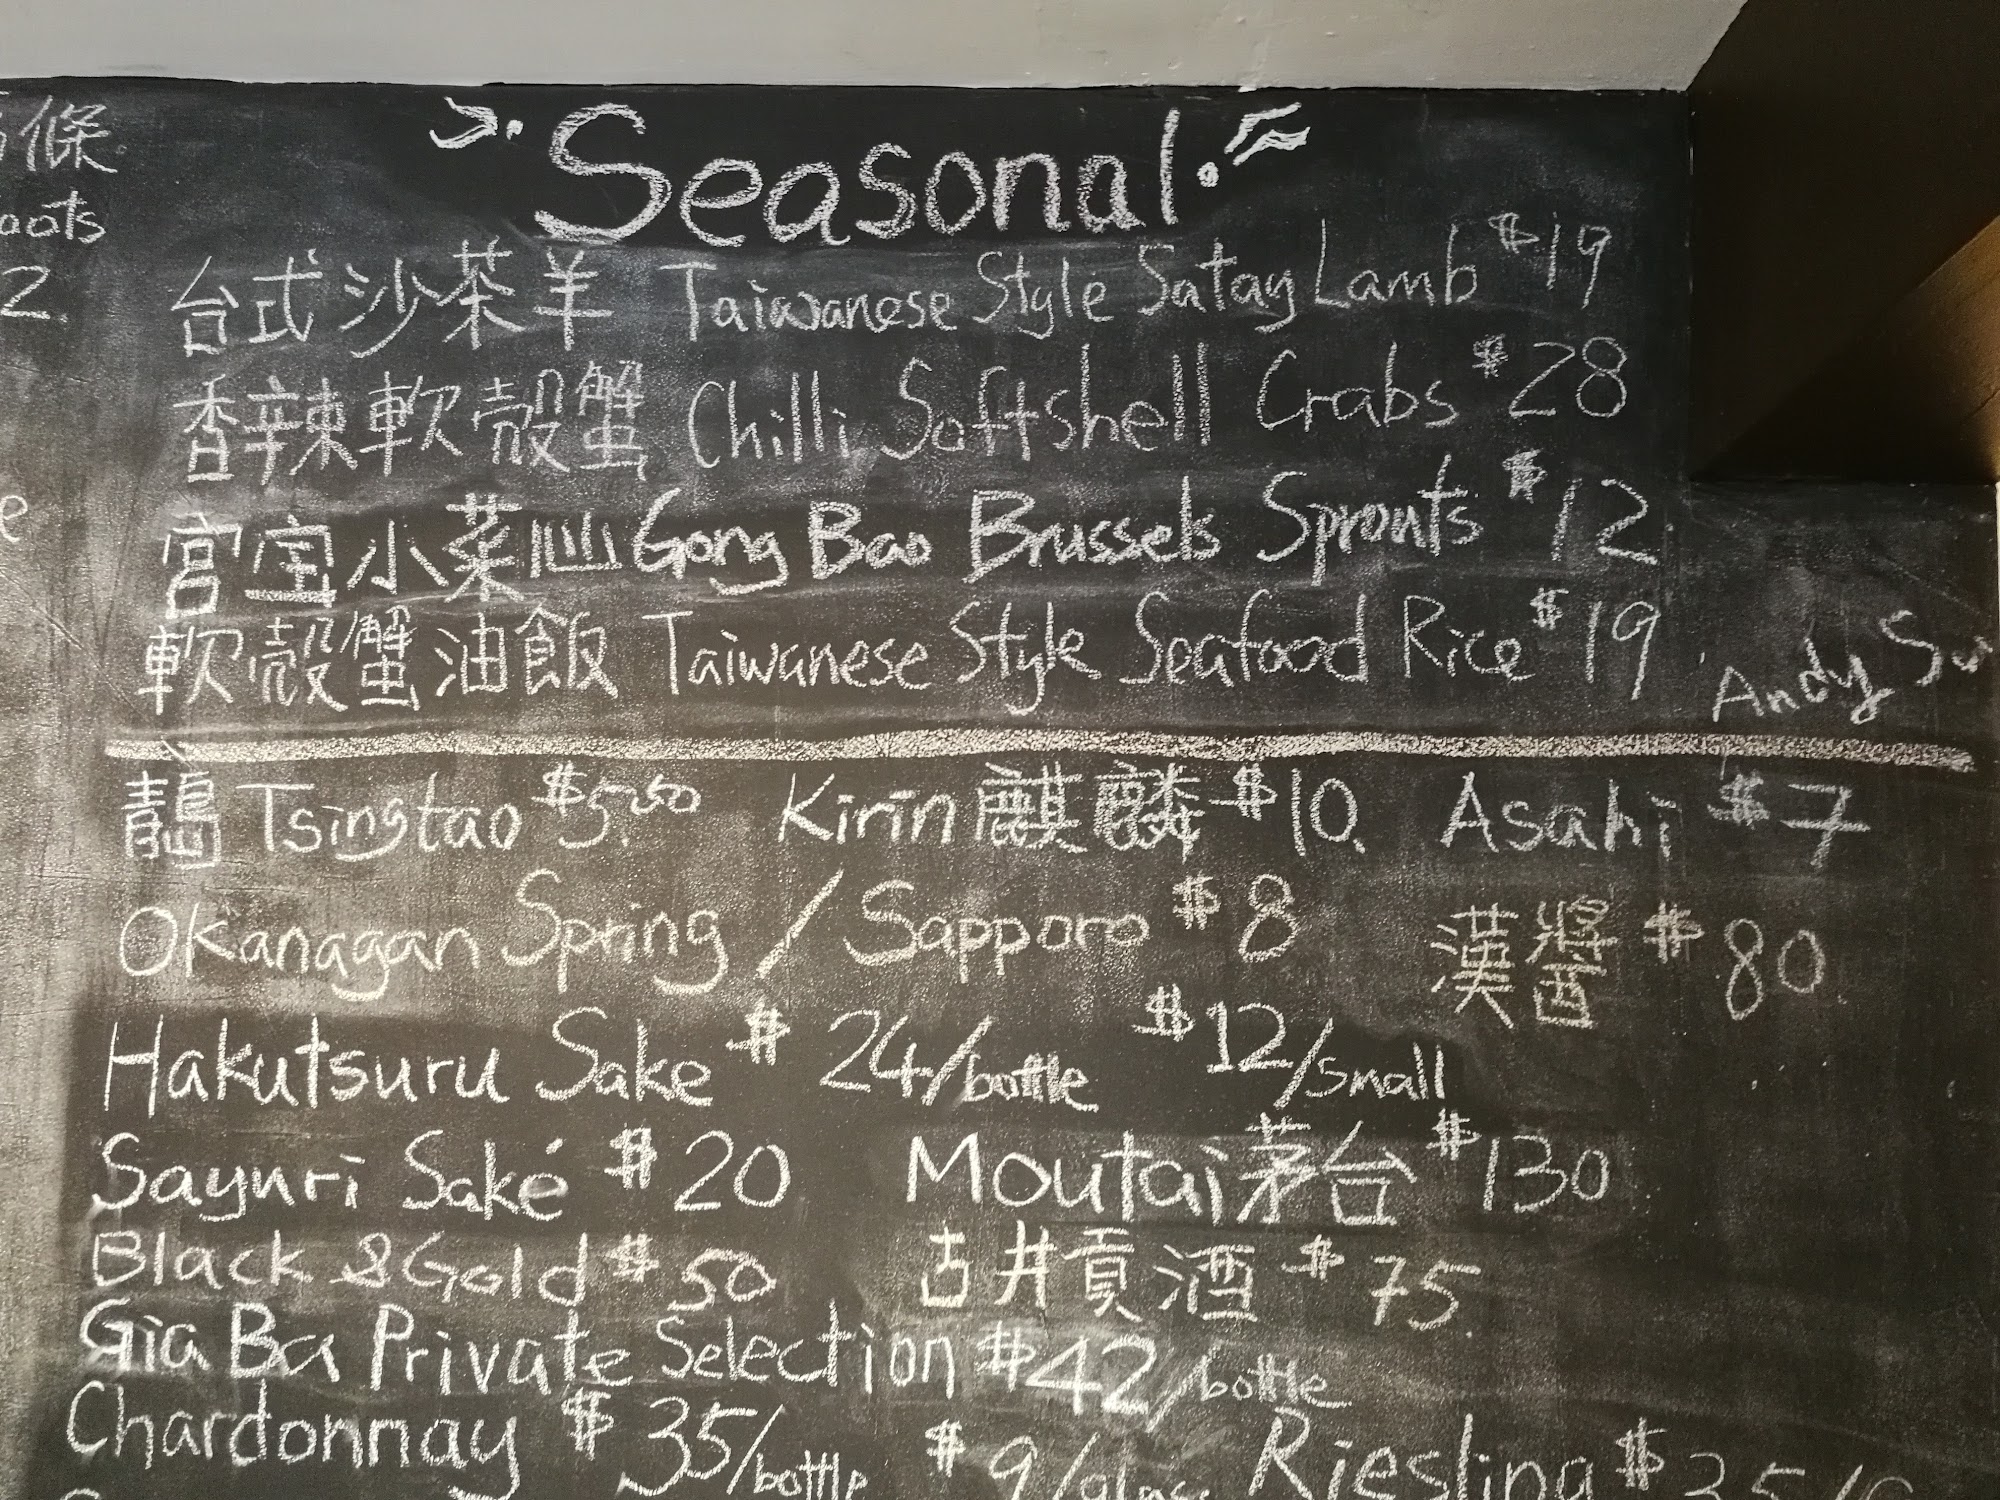 條
aots
2
e
Seasonal
台式沙茶羊 Taiwanese Style Satay Lamb $19
香辣軟殼蟹 Chilli Softshell Crabs $28
宮宝小菜心 Gong Bao Brussels Sprouts $12
軟殼蟹油飯 Taiwanese Style Seafood Rice $19
Andy Su
Tsingtao $5.50 Kirin 麒麟 $10. Asahi $7
Okanagan Spring / Sapporo $8 漢醬 $80
Hakutsuru Sake $24/bottle $12/small
Sayuri Saké $20 Moutai 茅台 $130
Black & Gold $50 古井貢酒 $75
Gia Ba Private Selection $42/bottle
Chardonnay $35/bottle $9/glass Riesling $35/